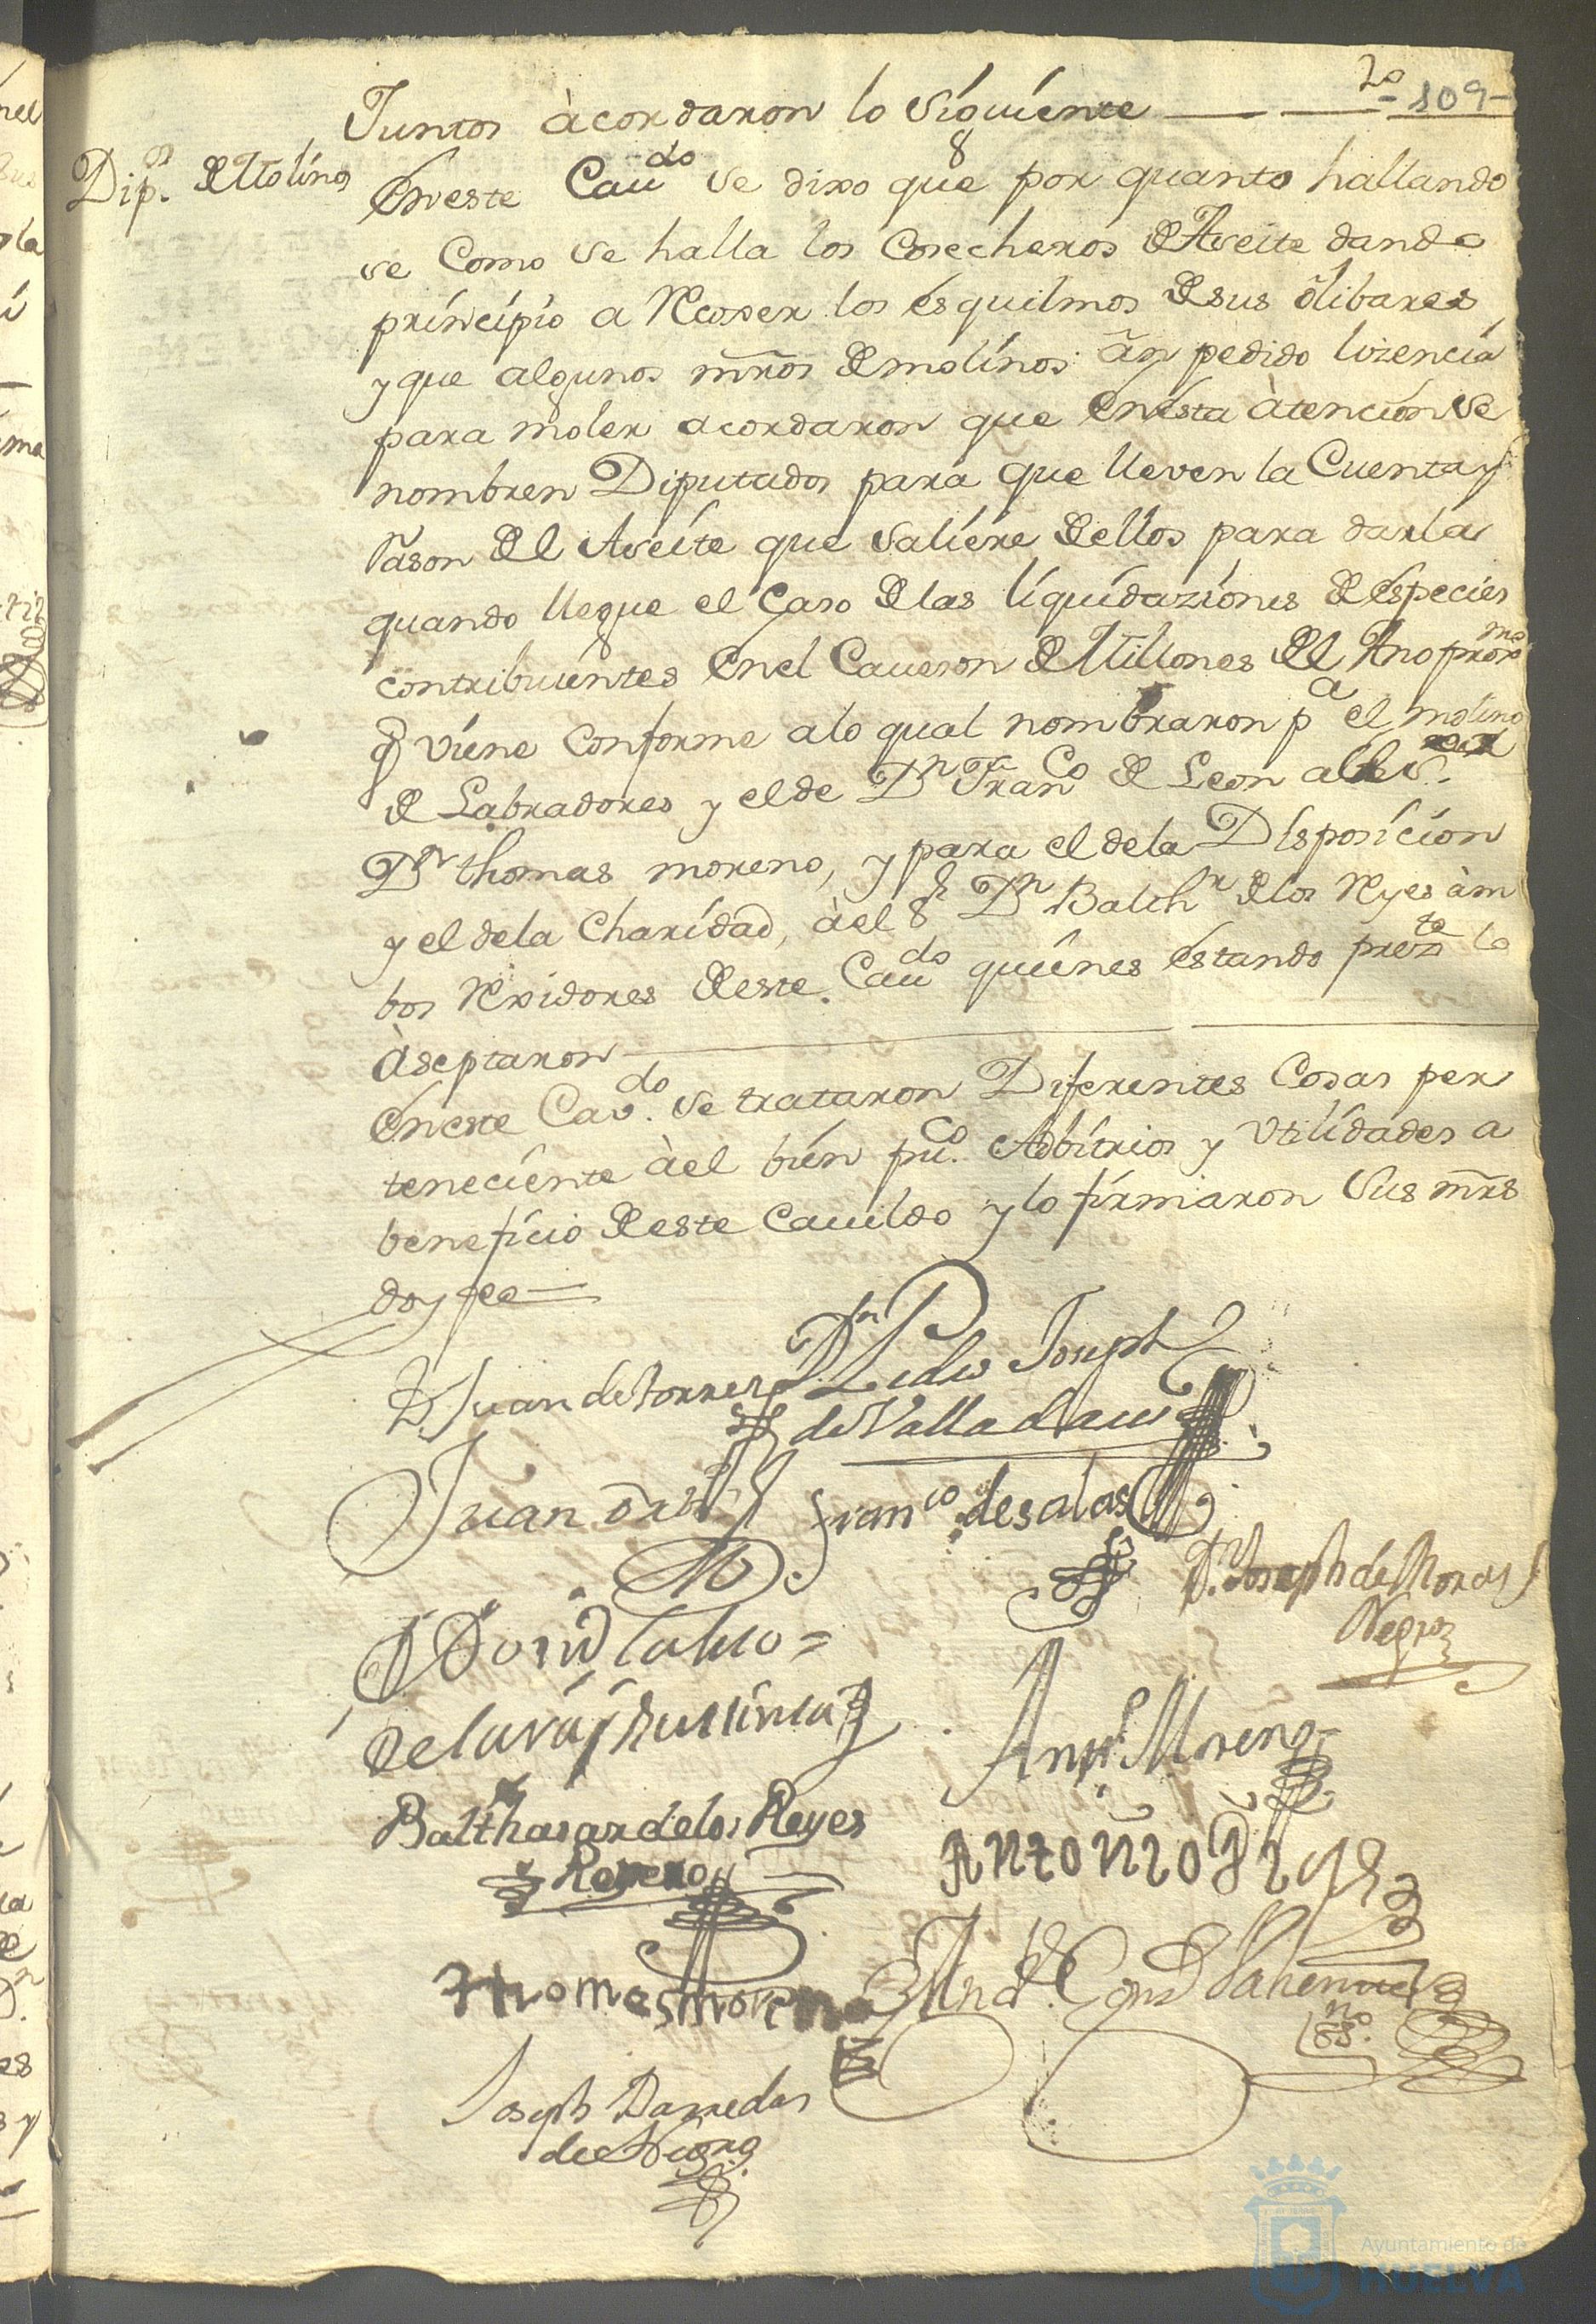 Juntos àcordaron lo siguiente
- 109 -
Dip.os de Molinos
Eneste Cau.do se dixo que por quanto hallando
se como se halla los Cosecheros de Aseite dando
principio a Recoxer los esquilmos de sus olibares
y que algunos mros de molinos an pedido lizencia
para moler acordaron que en esta àtencion se
nombren Diputados para que lleven la Cuenta y
Rason del Aseite que saliere de ellos para darla
quando llegue el Caso de las liquidaziones de especies
contribuientes en el Caueson de Millones del Ano prox.mo
q viene conforme a lo qual nombraron p.a el molino
de Labradores y el de D.n Fran.co de Leon al
D.n thomas moreno, y para el dela Disposicion
y el dela Charidad, àel S.r D.n Balth.r de los Reyes àm
bos Rexidores de este Cau.do quienes estando prez.te lo
àseptaron
Eneste Cav.do se trataron Diferentes Cosas per
teneciente àel bien pu.co Adbitrios y utilidades a
beneficio de este Cauildo y lo firmaron sus mrs
doy fee
D. Juan de Torres
D.n Pedro Joseph
de Valladares
Juan Orti
Fran.co de salas
D.n Joseph de Moras
Negro
de lara y
Ant.o Moreno
Balthasar de los Reyes
Romero
Antonio
Thomas moreno
Joseph Barredas
de
Ayuntamiento de
HUELVA